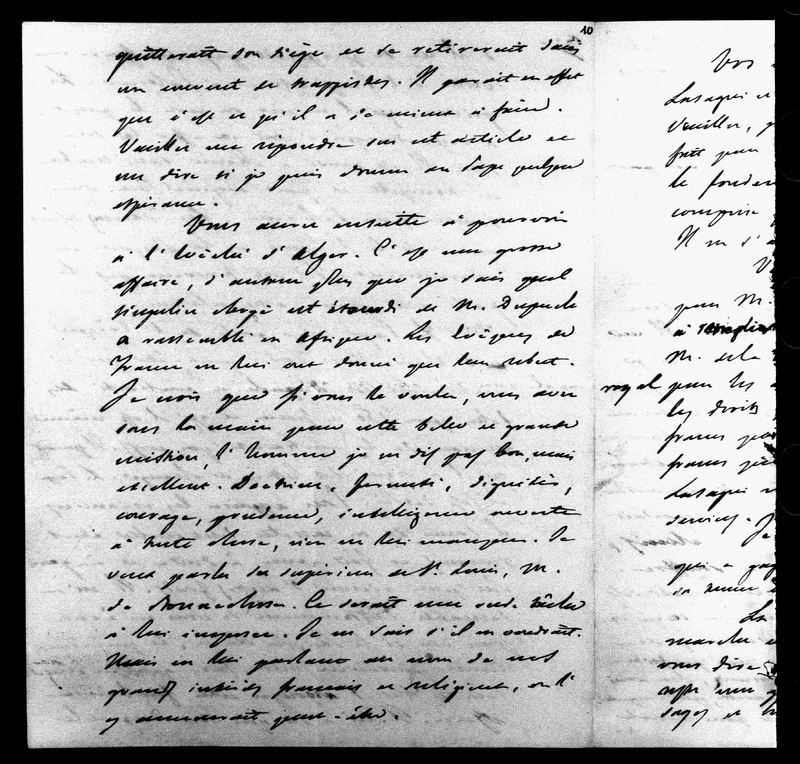 10
quitterait son siège et se retirerait dans
un couvent de trappistes. Il parait en effet
que c'est ce qu'il a de mieux à faire.
Veuillez me répondre sur cet article et
me dire si je puis donner au Pape quelque
espérance.
Vous aurez ensuite à pourvoir
à l'évêché d'Alger. C'est une grosse
affaire, d'autant plus que je sais quel
singulier clergé cet étourdi de M. Dupuch
a rassemblé en Afrique. Les évêques de
France ne lui ont donné que leur rebut.
Je crois que si vous le voulez, vous avez
sous la main pour cette belle et grande
mission, l'homme je ne dis pas bon, mais
excellent. Doctrine, fermeté, dignité,
courage, prudence, intelligence ouverte
à toute chose, rien ne lui manque. Je
veux parler du supérieur de St. Louis, M.
de Bonnechose. Ce serait une rude tâche
à lui imposer. Je ne sais s'il en voudrait.
Mais en lui parlant au nom de nos
grands intérêts français et religieux, on l'
y amènerait peut-être.
Vos
Lasagni et
Veuillez,
fait pour
le fonde
comprise
Il n'
V
pour M.
à
M. de la
royal pour les
les droits
francs pour
francs
Lasagni
services. Je
qui a
sa
La
marche
vous dire
sages et